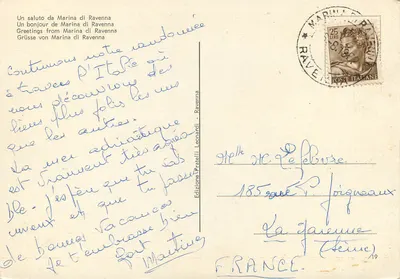 Un saluto da Marina di Ravenna
Un bonjour de Marina di Ravenna
Greetings from Marina di Ravenna
Grüsse von Marina di Ravenna
Continuons notre randonnée
à travers l'Italie où
nous découvrons des
lieux plus jolis les uns
que les autres.
La mer adriatique
est vraiment très agréa
ble. J'espère que tu
et que tu passes
de bonnes vacances
Je t'embrasse bien
fort Martine
Edizione Fratelli Leonardi - Ravenna
MARINA DI RAVENNA
Melle M. Lefebvre
185 rue
La Garenne
(Seine)
FRANCE